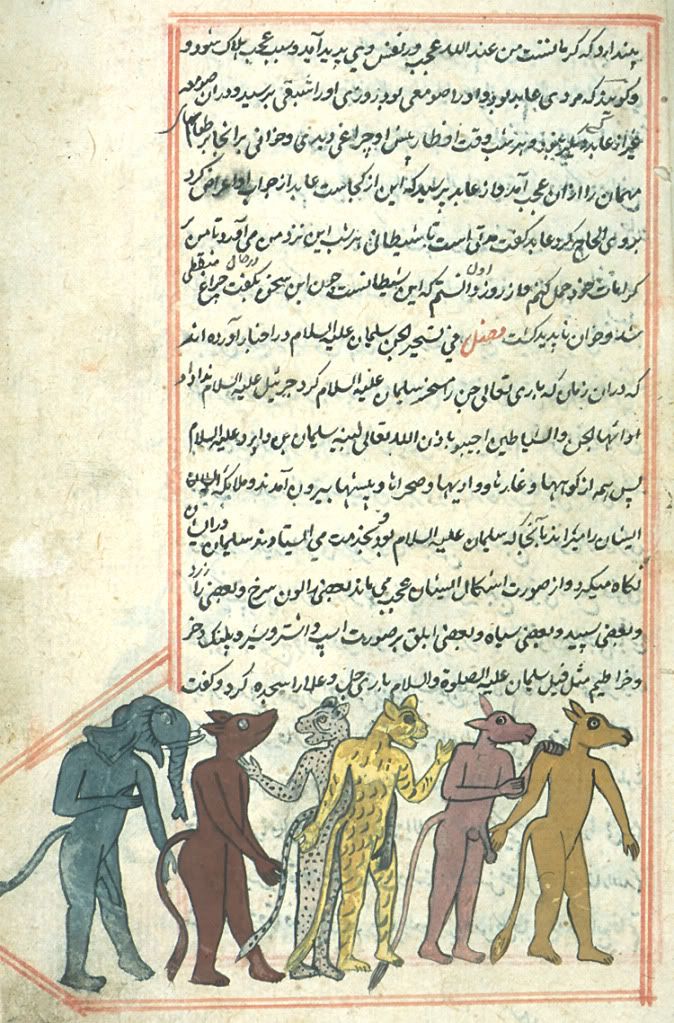 پندارد که کرمانست من عند الله عجب در نفس وی پدید آمد و سبب عجب هلاک شود و
و گویند که مردی عابد بود و او را صومعی بود روزی او را شبقی برسید و در ان صومعه
غیر از عابد کسی نبود و هر شب وقت افطار پیش او چراغی دیدی و خوانی بر انجا بر طعام
مهمان را از ان عجب آمد و از عابد پرسید که این از کجاست عابد از جواب او اعراض کرد
بر وی الحاح کرد عابد گفت مدتی است تا شیطانی هر شب این نزد من می آورد تا من
کرامات خود حمل کنم و از روز اول دانستم که این شیطانست چون این سخن بگفت در حال چراغ منطفی
شد و خوان ناپدید گشت فصل فی تسخیر الجن سلیمان علیه السلام در اخبار آورده اند
که در ان زمان که باری تعالی جن را مسخر سلیمان علیه السلام کرد جبرئیل علیه السلام ندا داد
ایتها الجن و الشیاطین اجیبو باذن الله تعالی لنبیه سلیمان بن داود علیه السلام
پس همه از کوهها و غارها و وادیها و صحراها و بیشها بیرون آمدند و ملایکه
ایشان را میراندند تا آنجا که سلیمان علیه السلام بود و بخدمت می ایستاوند سلیمان در ایشان
نگاه میکرد و از صورت اشکال ایشان عجب می ماند بعضی را لون سرخ و بعضی را زرد
و بعضی سپید و بعضی سیاه و بعضی ابلق بر صورت اسپ و اشتر و شیر و پلنگ و خر
و خراطیم مثل فیل سلیمان علیه الصلوة و السلام باری جل و علا را سجده کرد و گفت